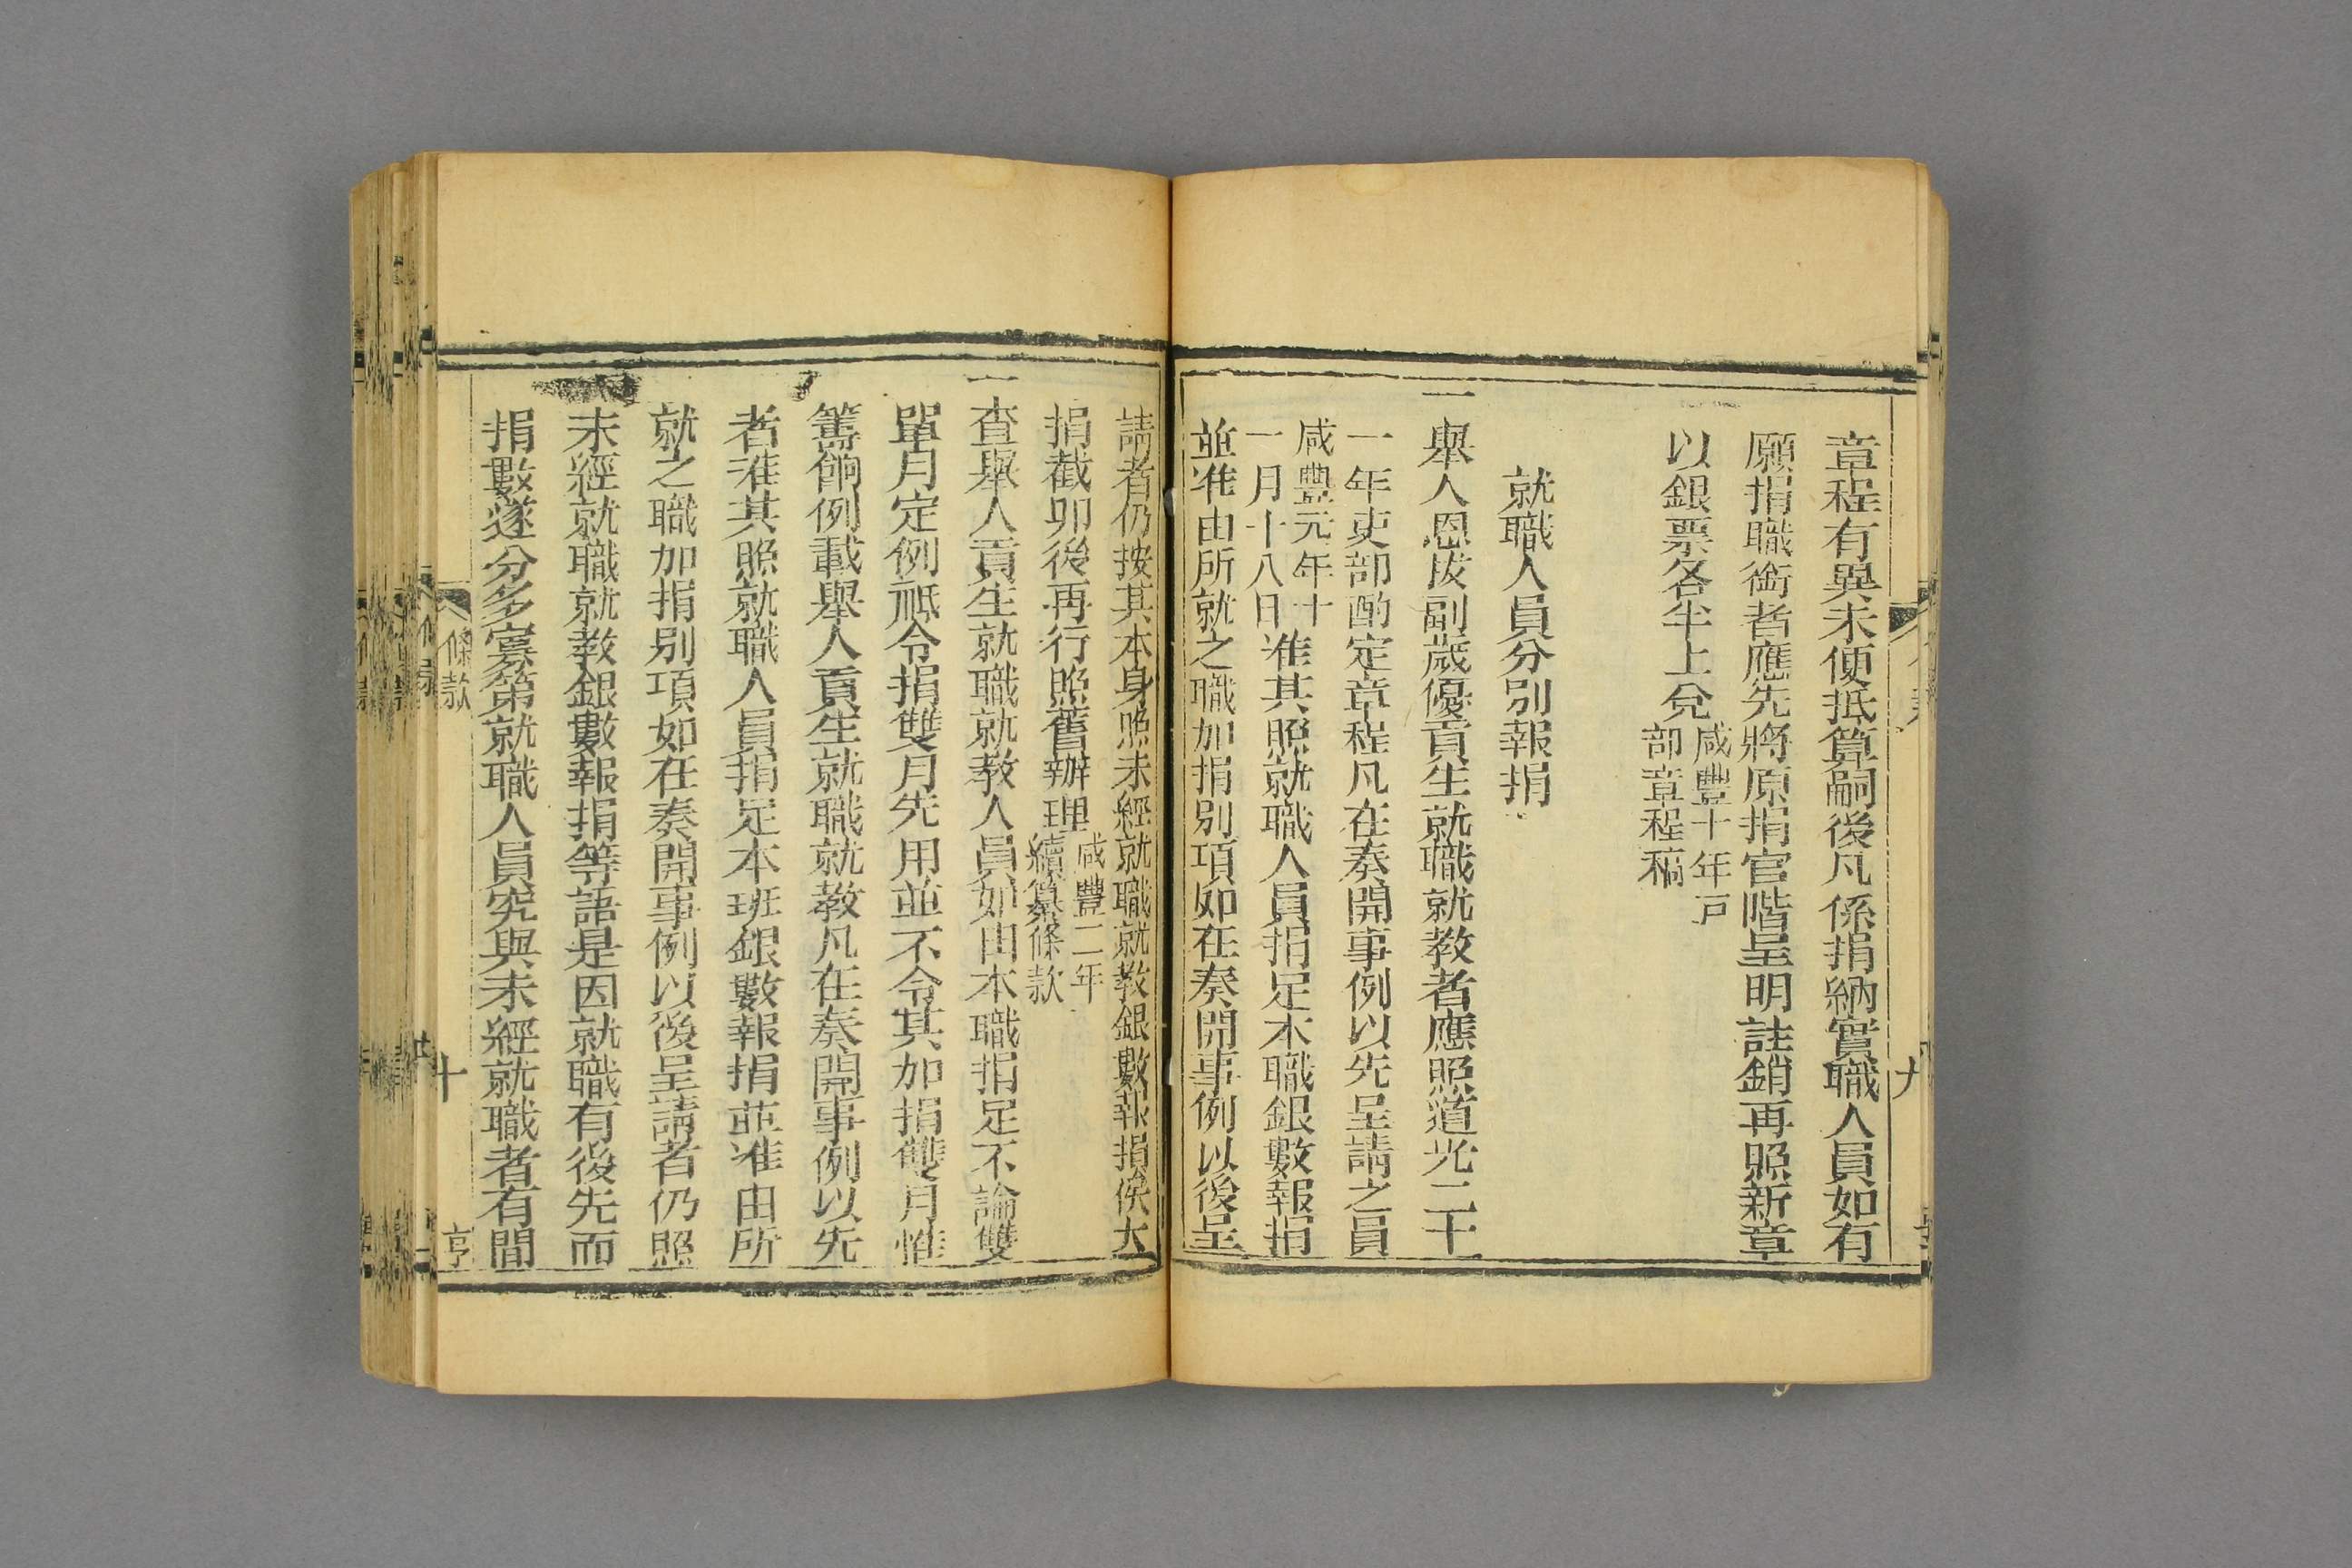 章程有異未便抵算嗣後凡係捐納實職人員如有
願捐職銜者應先將原捐官階呈明註銷再照新章
以銀票各半上兌咸豐十年戸
部章程稿
就職人員分別報捐
一舉人恩拔副歲優貢生就職就教者應照道光二十
一年吏部酌定章程凡在奏開事例以先呈請之員
咸豐元年十
一月十八日准其照就職人員捐足本職銀數報捐
並准由所就之職加捐別項如在奏開事例以後呈
九
請者仍按其本身照未經就職就教銀數報捐俟大
捐截卯後再行照舊辦理咸豐二年
續纂條款
一查舉人貢生就職就教人員如由本職捐足不論雙
單月定例祗令捐雙月先用並不令其加捐雙月惟
籌餉例載舉人貢生就職就教凡在奏開事例以先
者准其照就職人員捐足本班銀數報捐並准由所
就之職加捐別項如在奏開事例以後呈請者仍照
未經就職就教銀數報捐等語是因就職有後先而
捐數遂分多寡第就職人員究與未經就職者有間
條款
十
亨